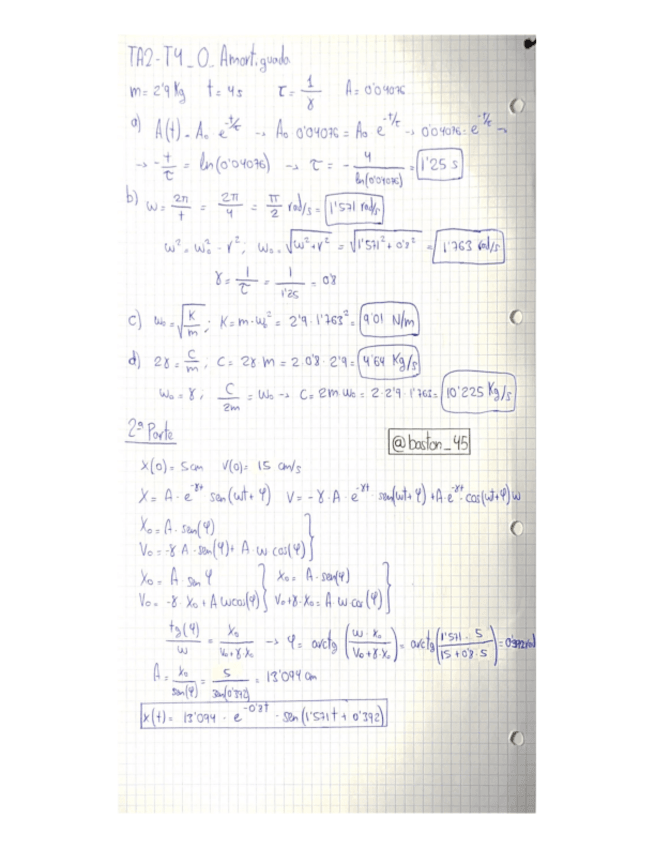 TA2-T4_O_Amortiguada
m = 2'9 Kg t = 4 s τ = 1/γ A = 0'04076
a) A(t) = A₀ e^(-t/τ) → A₀ 0'04076 = A₀ e^(-t/τ) → 0'04076 = e^(-t/τ) →
→ -t/τ = ln(0'04076) → τ = - 4/ln(0'04076) = 1'25 s
b) ω = 2π/t = 2π/4 = π/2 rad/s = 1'571 rad/s
ω² = ω₀² - γ²; ω₀ = √(ω² + γ²) = √(1'571² + 0'8²) = 1'763 rad/s
γ = 1/τ = 1/1'25 = 0'8
c) ω₀ = √(K/m); K = m·ω₀² = 2'9 · 1'763² = 9'01 N/m
d) 2γ = C/m; C = 2γ·m = 2·0'8·2'9 = 4'64 Kg/s
ω₀ = γ; C/2m = ω₀ → C = 2m ω₀ = 2·2'9·1'763 = 10'225 Kg/s
2ª Parte
@baston_45
X(0) = 5 cm V(0) = 15 cm/s
X = A · e^(-γt) sen(ωt + φ) V = -γ·A·e^(-γt) · sen(ωt + φ) + A·e^(-γt) · cos(ωt + φ) ω
X₀ = A · sen(φ)
V₀ = -γ A · sen(φ) + A ω cos(φ)
X₀ = A sen φ } X₀ = A · sen(φ)
V₀ = -γ X₀ + A ω cos(φ) } V₀ + γ·X₀ = A ω cos(φ)
tg(φ)/ω = X₀/(V₀ + γ·X₀) → φ = arctg(ω·X₀/(V₀ + γ·X₀)) = arctg(1'571 · 5/(15 + 0'8·5)) = 0'392 rad
A = X₀/sen(φ) = 5/sen(0'392) = 13'094 cm
x(t) = 13'094 · e^(-0'8t) · sen(1'571t + 0'392)